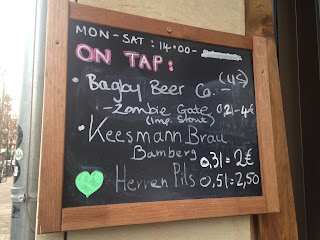 MON-SAT: 14:00-
ON TAP:
• Bagby Beer Co. - (US)
- Zombie Gate 0,2l-4€
(Imp. Stout)
• Keesmann Bräu
Bamberg
0,3l=2€
Herren Pils 0,5l=2,50